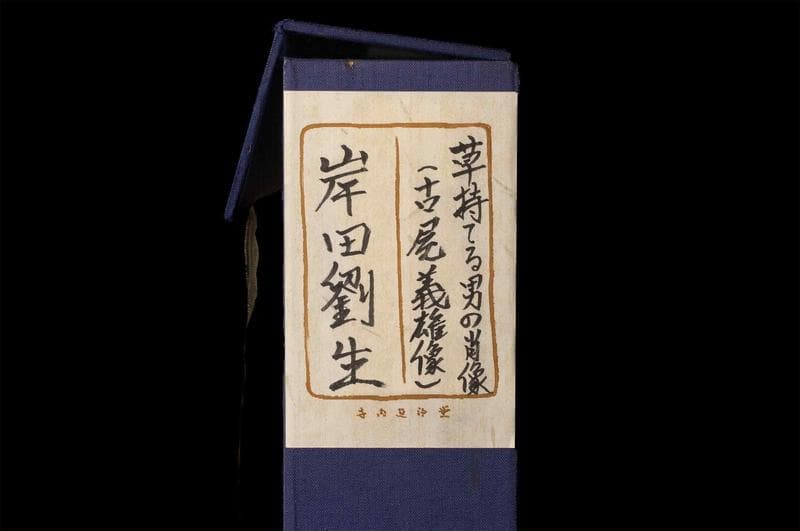 草持てる男の肖像
(古屋義雄像)
岸田劉生